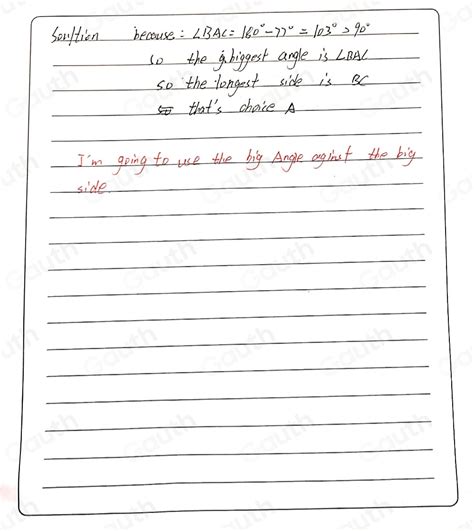 Soultion because: ∠BAC = 180° - 77° = 103° > 90°
so the biggest angle is ∠BAC
so the longest side is BC
that's choice A
I'm going to use the big Angle against the big
side.
Gauth